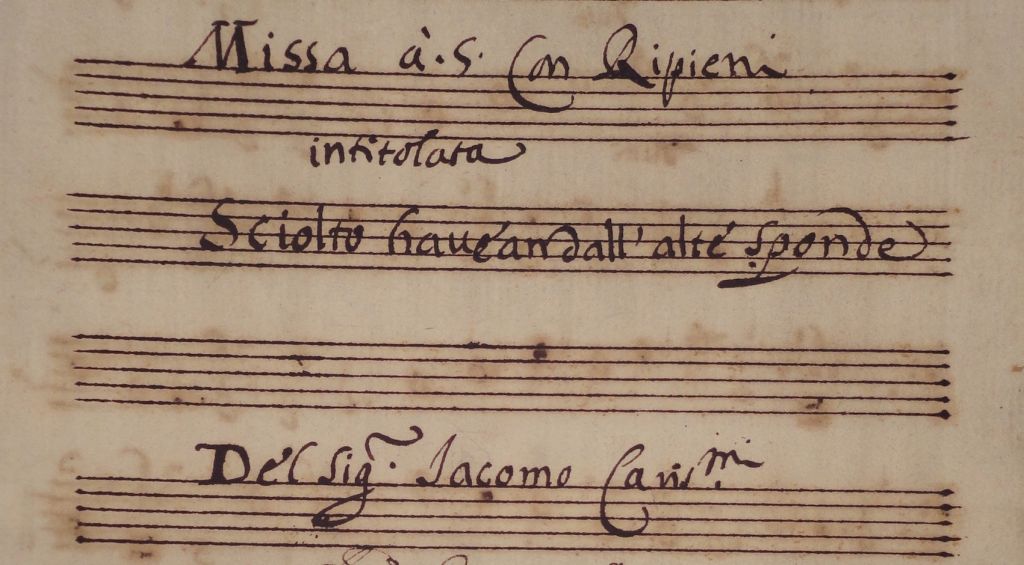 Missa à. 5. Con Ripieni
intitolata
Sciolto havean dall' alte sponde
Del Sig.r Iacomo Caris.mi